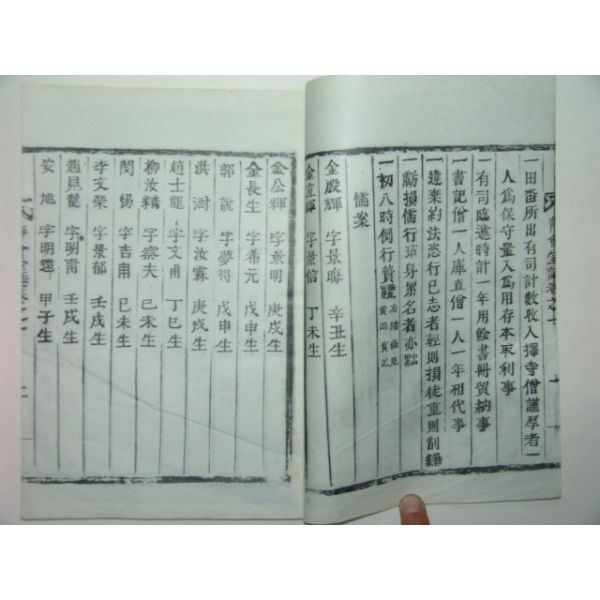 一田畓所出有司計數收入擇寺僧謹厚者一
人爲保守量入爲用存本取利事
一有司臨遞時計一年用餘書冊貿納事
一書記僧一人庫直僧一人一年相代事
一違棄約法恣行已志者輕則損徒重則削籍
一虧損儒行玷身累名者亦黜
一初八時例行贄禮
儒案
金殷輝 字景晦 辛丑生
輝 字景信 丁未生
金公輝 字景明 庚戌生
金長生 字希元 戊申生
郭說 字夢得 戊申生
洪澍 字汝霖 庚戌生
趙士龍 字文甫 丁巳生
柳汝精 字察夫 己未生
閔愓 字吉甫 己未生
李文榮 字景郁 壬戌生
趙見龍 字明甫 壬戌生
安旭 字明遠 甲子生